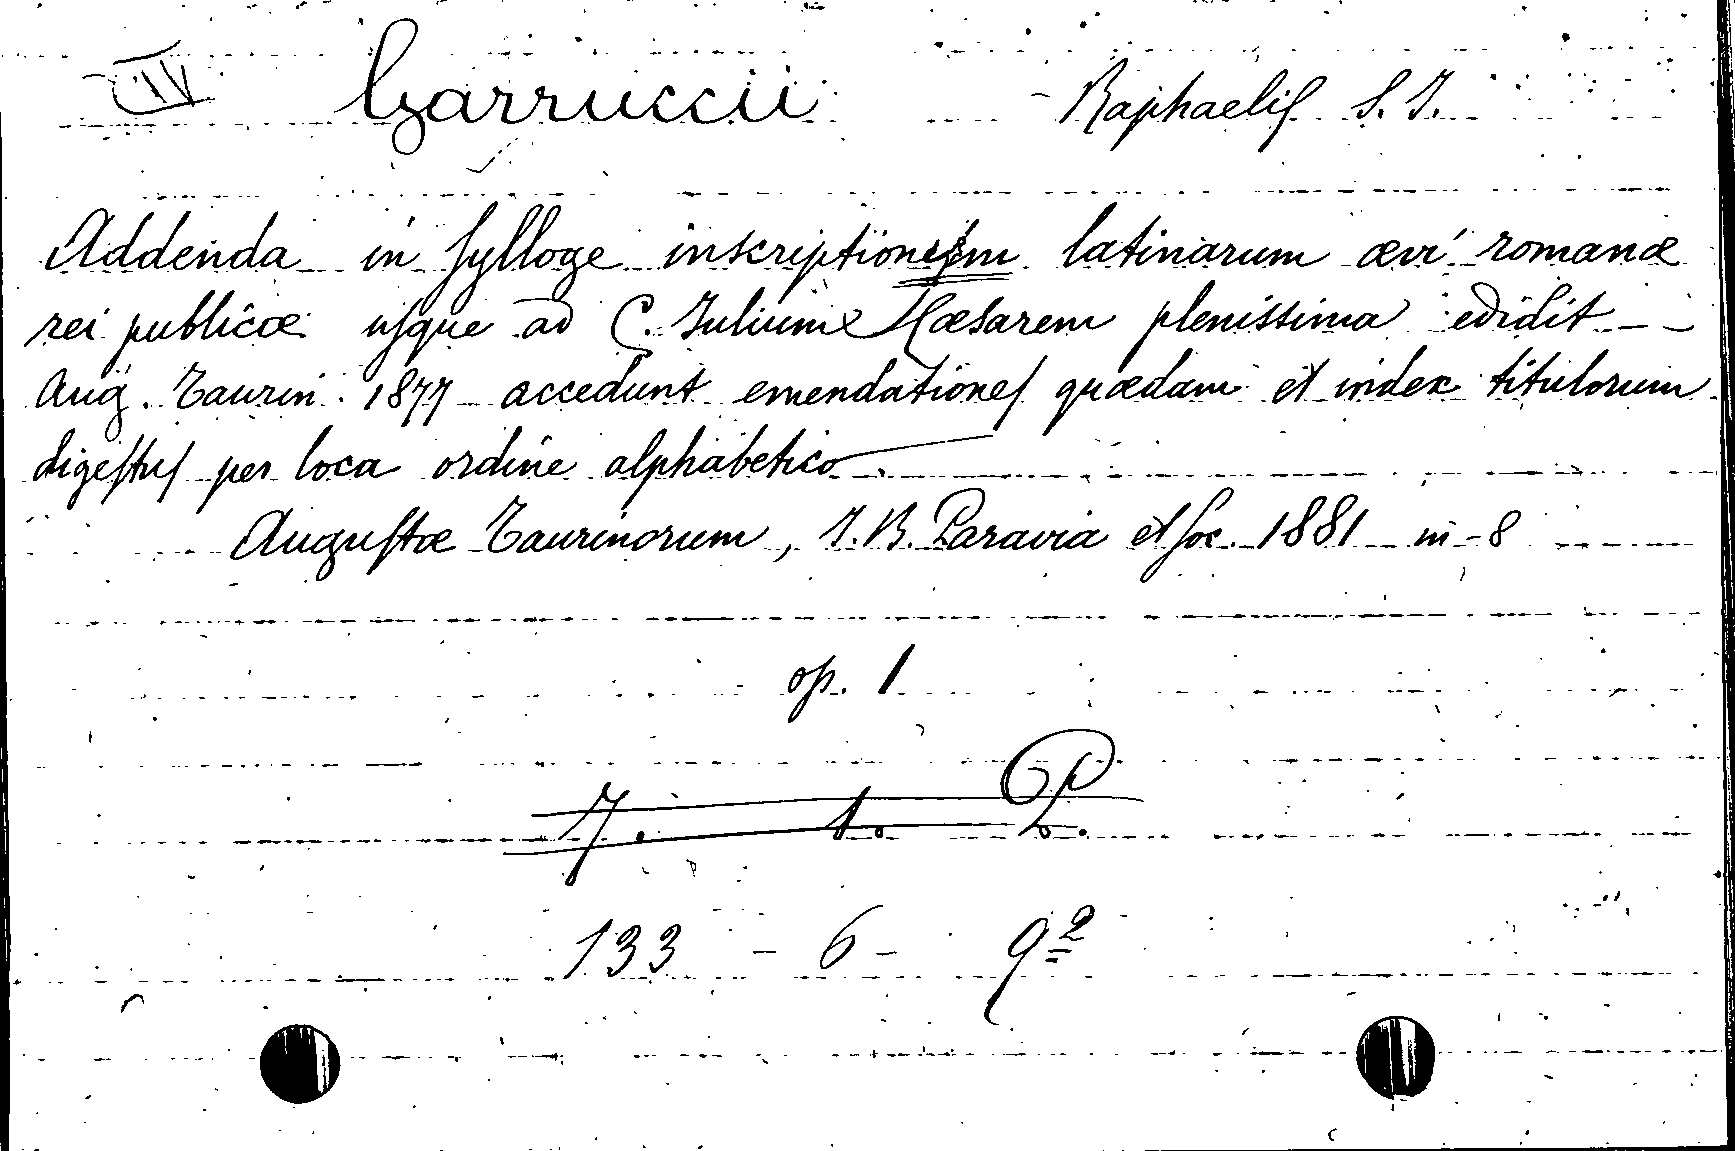 IV Garruccii Raphaelis S. J.
Addenda in sylloge inscriptionum latinarum ævi romanæ
rei publicæ usque ad C. Julium Cæsarem plenissima edidit - -
Aug. Taurin. 1877 accedunt emendationes quædam et index titulorum
digestus per loca ordine alphabetico.
Augustæ Taurinorum, J. B. Paravia et Soc. 1881 in-8
op. 1
7. 1.
133 - 6 - 9²